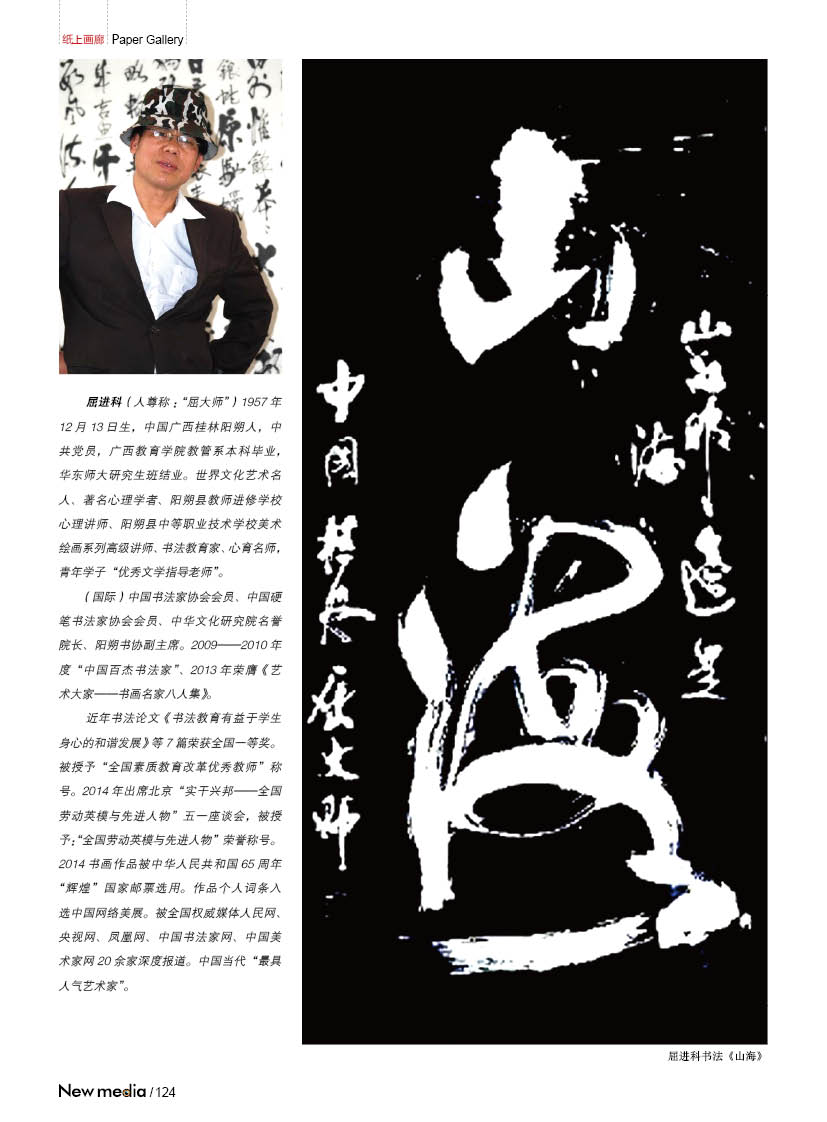 纸上画廊 Paper Gallery
屈进科（人尊称：“屈大师”）1957 年
12 月 13 日生，中国广西桂林阳朔人，中
共党员，广西教育学院教管系本科毕业，
华东师大研究生班结业。世界文化艺术名
人、著名心理学者、阳朔县教师进修学校
心理讲师、阳朔县中等职业技术学校美术
绘画系列高级讲师、书法教育家、心育名师，
青年学子“优秀文学指导老师”。
（国际）中国书法家协会会员、中国硬
笔书法家协会会员、中华文化研究院名誉
院长、阳朔书协副主席。2009——2010 年
度“中国百杰书法家”、2013 年荣膺《艺
术大家——书画名家八人集》。
近年书法论文《书法教育有益于学生
身心的和谐发展》等 7 篇荣获全国一等奖。
被授予“全国素质教育改革优秀教师”称
号。2014 年出席北京“实干兴邦——全国
劳动英模与先进人物”五一座谈会，被授
予：“全国劳动英模与先进人物”荣誉称号。
2014 书画作品被中华人民共和国 65 周年
“辉煌”国家邮票选用。作品个人词条入
选中国网络美展。被全国权威媒体人民网、
央视网、凤凰网、中国书法家网、中国美
术家网 20 余家深度报道。中国当代“最具
人气艺术家”。
山海
中國桂林屈大师
屈进科书法《山海》
New media / 124